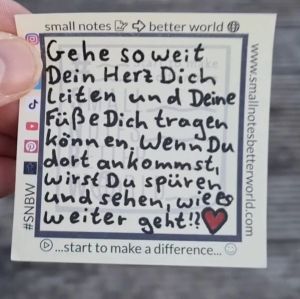 small notes better world
Gehe so weit
Dein Herz Dich
Leiten und Deine
Füße Dich tragen
können. Wenn Du
dort ankommst,
wirst Du spüren
und sehen, wie es
weiter geht!!
...start to make a difference...
#SNBW
www.smallnotesbetterworld.com